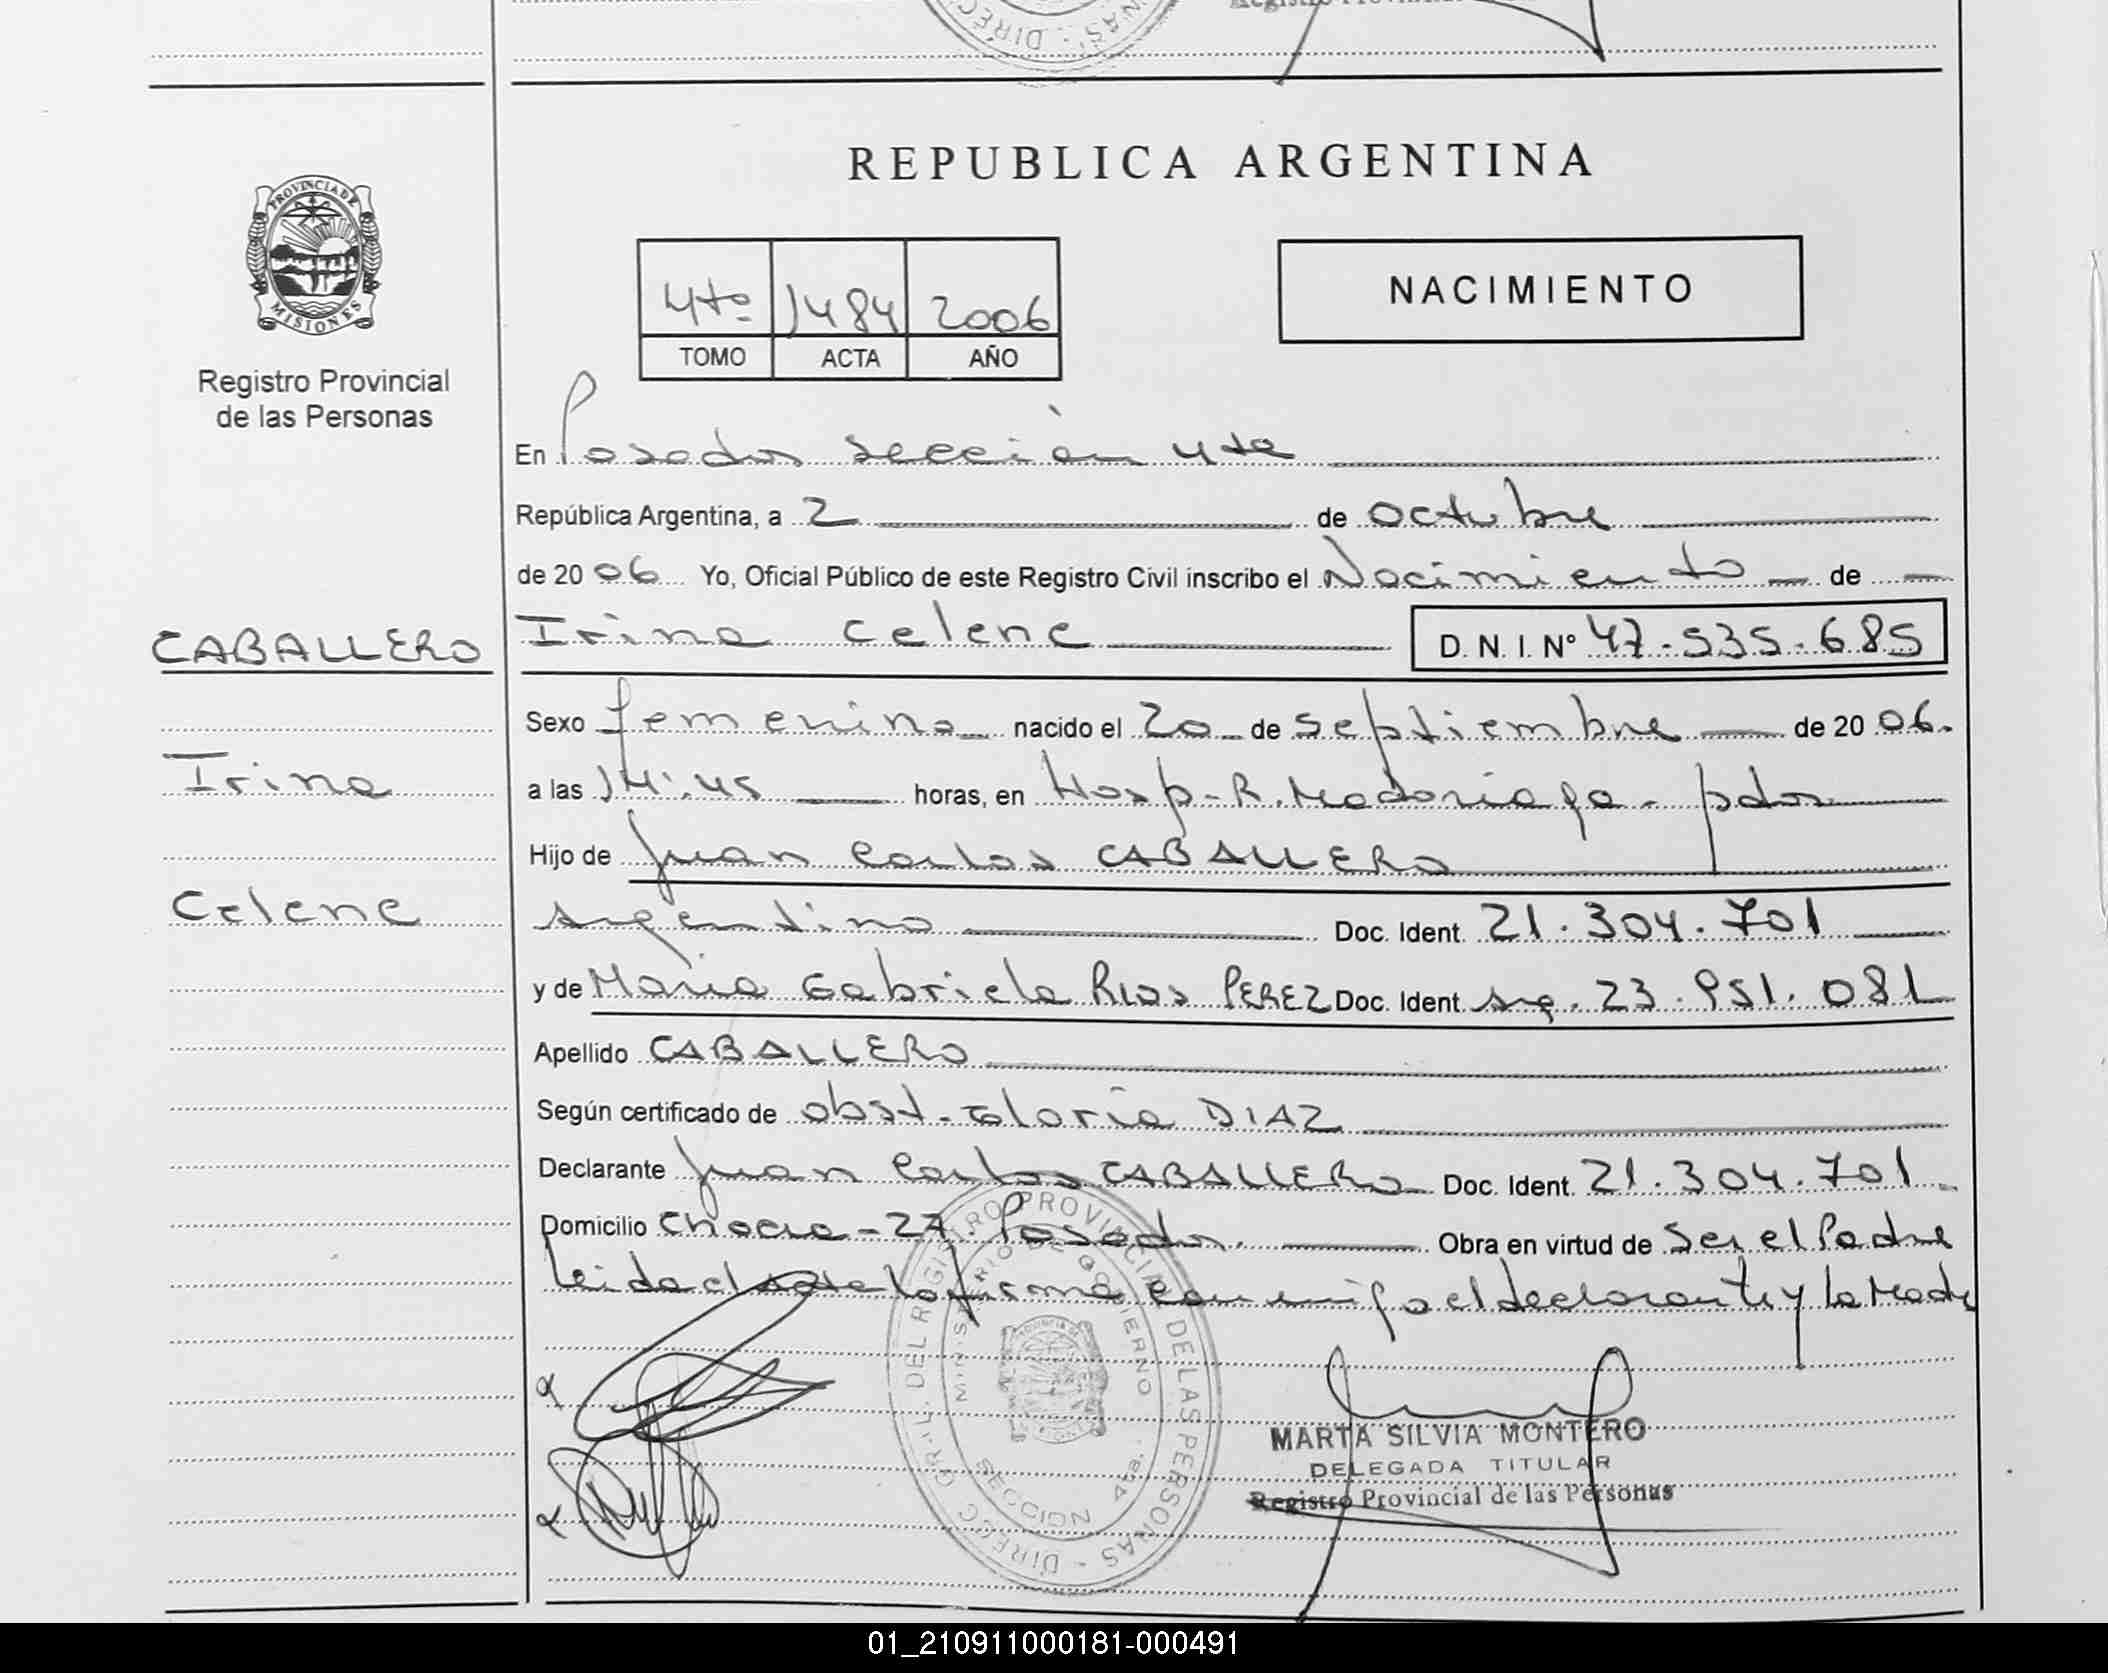 REPUBLICA ARGENTINA
PROVINCIA DE MISIONES
Registro Provincial
de las Personas
NACIMIENTO
4to 1484 2006
TOMO ACTA AÑO
En Posadas sección 4ta
República Argentina, a 2 de octubre
de 2006 Yo, Oficial Público de este Registro Civil inscribo el Nacimiento de
CABALLERO
Irina Celene D. N. I. Nº 47.535.685
Sexo femenino nacido el 20 de septiembre de 2006.
Irina
a las 14:45 horas, en Hosp. R. Madariaga - pdas
Hijo de Juan Carlos CABALLERO
Celene
Argentino Doc. Ident. 21.304.701
y de Maria Gabriela Rios PEREZ Doc. Ident. Arg. 23.951.081
Apellido CABALLERO
Según certificado de obst. Gloria DIAZ
Declarante Juan Carlos CABALLERO Doc. Ident. 21.304.701
Domicilio Chacra - 27. Posadas. Obra en virtud de Ser el Padre
leida el acta la firma conmigo el declarante y la Madre
DIRECC. GRAL. DEL REGISTRO PROVINCIAL DE LAS PERSONAS
MINISTERIO DE GOBIERNO
SECCION 4ta.
MARTA SILVIA MONTERO
DELEGADA TITULAR
Registro Provincial de las Personas
01_210911000181-000491